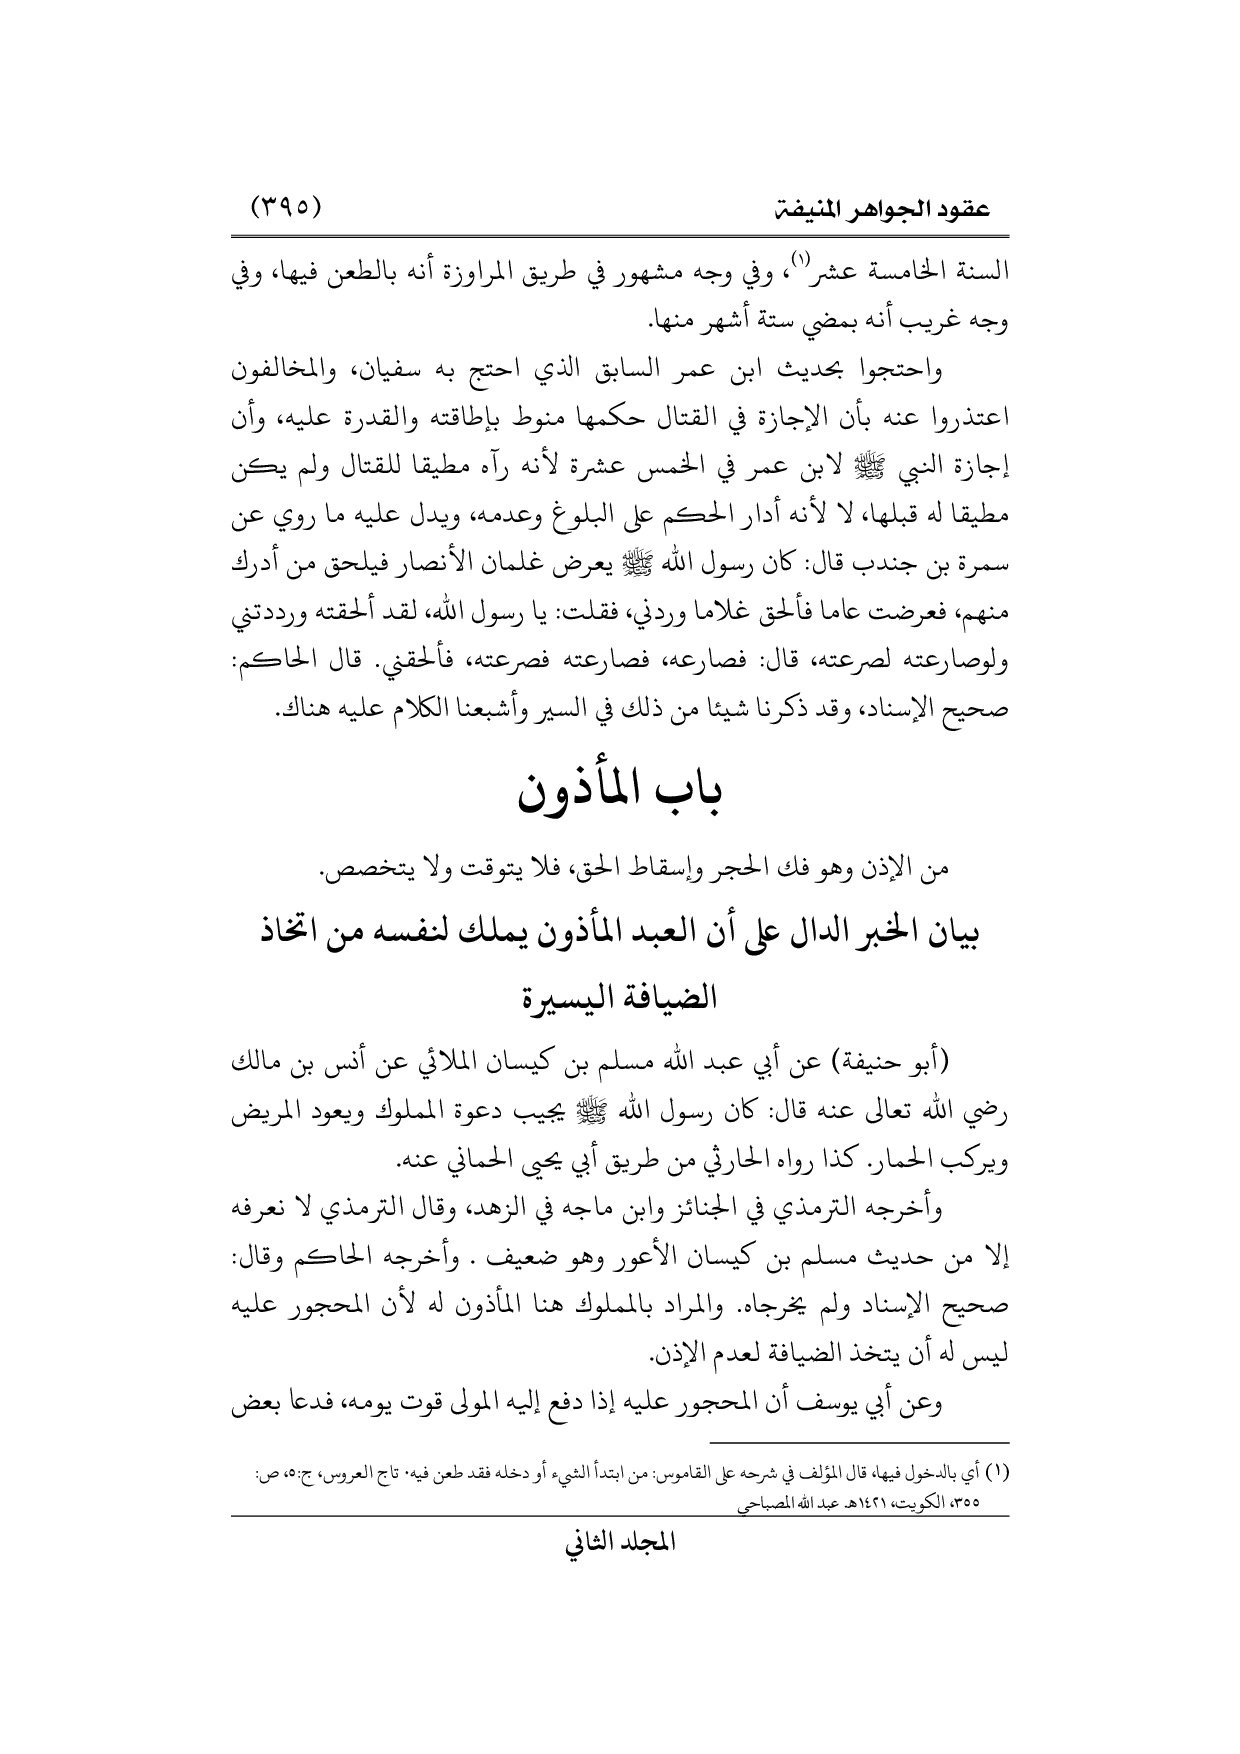 عقود الجواهر المنيفة (٣٩٥)
السنة الخامسة عشر(١)، وفي وجه مشهور في طريق المراوزة أنه بالطعن فيها، وفي
وجه غريب أنه بمضي ستة أشهر منها.
واحتجوا بحديث ابن عمر السابق الذي احتج به سفيان، والمخالفون
اعتذروا عنه بأن الإجازة في القتال حكمها منوط بإطاقته والقدرة عليه، وأن
إجازة النبي ﷺ لابن عمر في الخمس عشرة لأنه رآه مطيقا للقتال ولم يكن
مطيقا له قبلها، لا لأنه أدار الحكم على البلوغ وعدمه، ويدل عليه ما روي عن
سمرة بن جندب قال: كان رسول الله ﷺ يعرض غلمان الأنصار فيلحق من أدرك
منهم، فعرضت عاما فألحق غلاما وردني، فقلت: يا رسول الله، لقد ألحقته ورددتني
ولوصارعته لصرعته، قال: فصارعه، فصارعته فصرعته، فألحقني. قال الحاكم:
صحيح الإسناد، وقد ذكرنا شيئا من ذلك في السير وأشبعنا الكلام عليه هناك.
باب المأذون
من الإذن وهو فك الحجر وإسقاط الحق، فلا يتوقت ولا يتخصص.
بيان الخبر الدال على أن العبد المأذون يملك لنفسه من اتخاذ
الضيافة اليسيرة
(أبو حنيفة) عن أبي عبد الله مسلم بن كيسان الملائي عن أنس بن مالك
رضي الله تعالى عنه قال: كان رسول الله ﷺ يجيب دعوة المملوك ويعود المريض
ويركب الحمار. كذا رواه الحارثي من طريق أبي يحيى الحماني عنه.
وأخرجه الترمذي في الجنائز وابن ماجه في الزهد، وقال الترمذي لا نعرفه
إلا من حديث مسلم بن كيسان الأعور وهو ضعيف . وأخرجه الحاكم وقال:
صحيح الإسناد ولم يخرجاه. والمراد بالمملوك هنا المأذون له لأن المحجور عليه
ليس له أن يتخذ الضيافة لعدم الإذن.
وعن أبي يوسف أن المحجور عليه إذا دفع إليه المولى قوت يومه، فدعا بعض
(١) أي بالدخول فيها، قال المؤلف في شرحه على القاموس: من ابتدأ الشيء أو دخله فقد طعن فيه. تاج العروس، ج:٥، ص:
٣٥٥، الكويت، ١٤٢١هـ. عبد الله المصباحي
المجلد الثاني